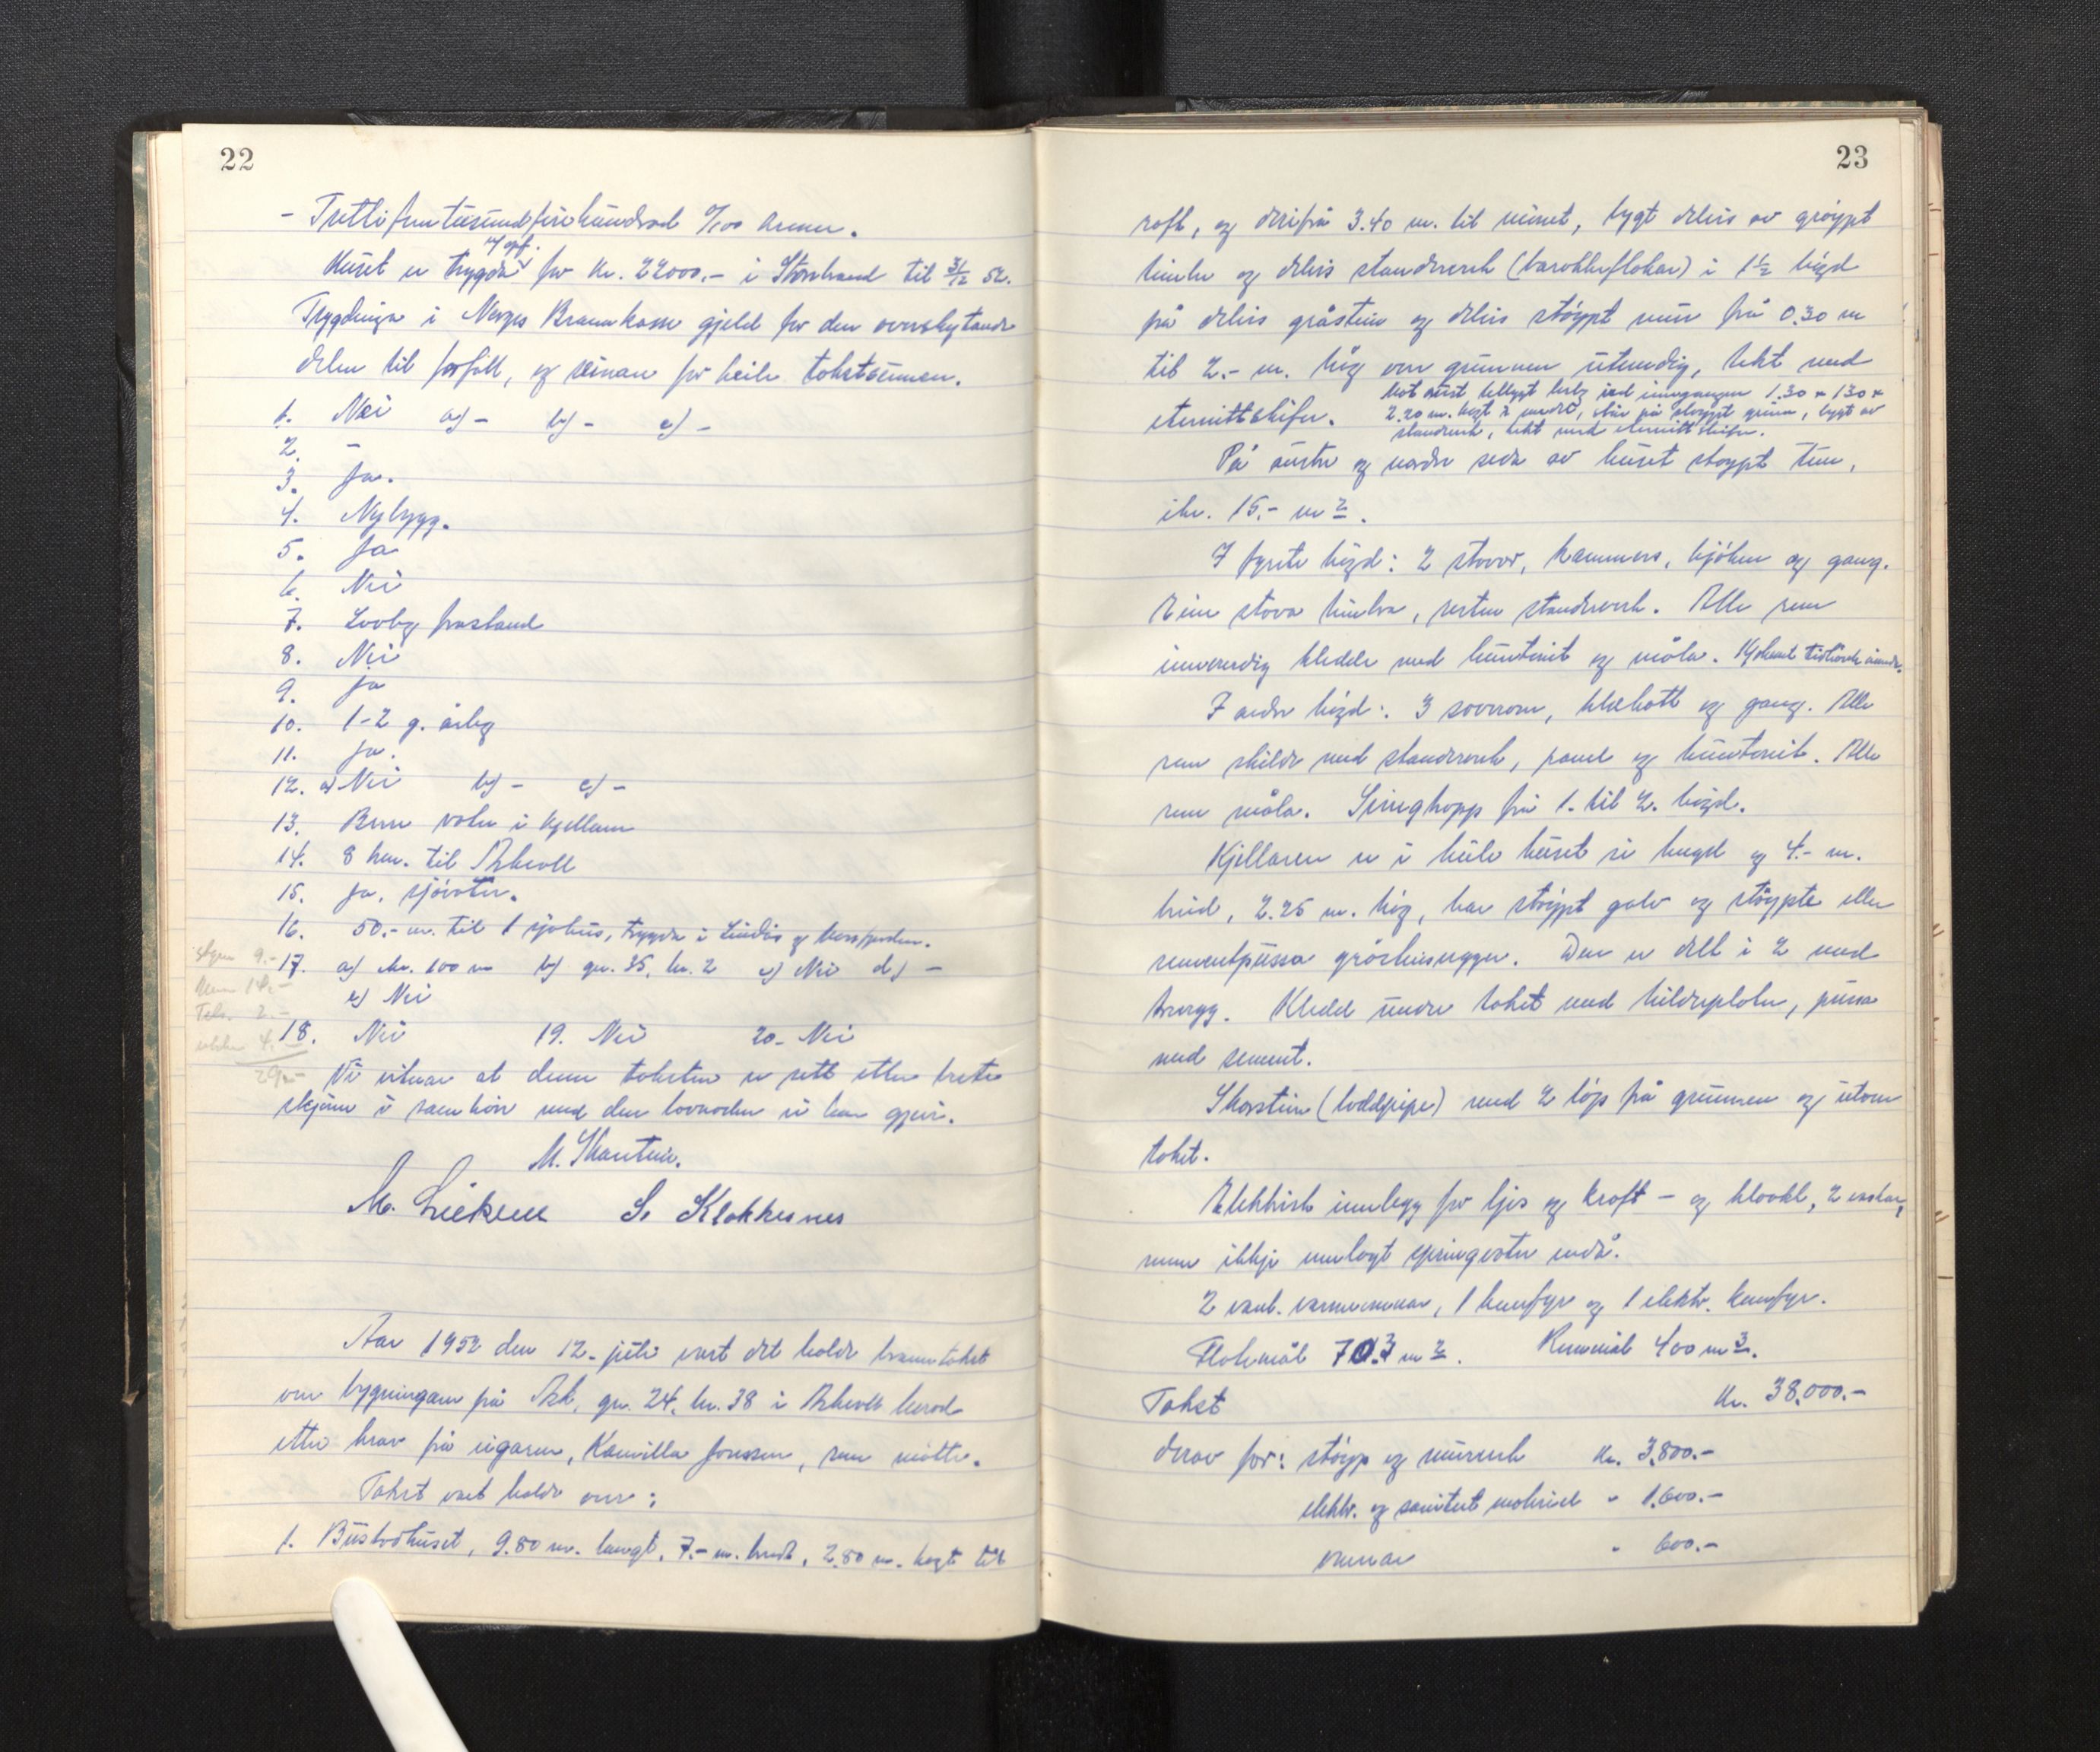 22
- Trettifemtusundfirehundrad 0/100 kroner.
Huset er trygda m/ opf. for kr. 22000.- i Storebrand til 31/12 52.
Trygdinga i Norges Brannkasse gjeld for den overskytande
delen til forfall, og seinare for heile takstsummen.
1. Nei a) - b) - c) -
2. -
3. Ja.
4. Nybygg.
5. Ja
6. Nei
7. Lovleg frastand
8. Nei
9. Ja
10. 1-2 g. årleg
11. Ja.
12. a) Nei b) - c) -
13. Berre ved i kjellaren
14. 8 km. til Askvoll
15. Ja, sjøvatn.
16. 50.- m. til 1 sjøhus, trygda i
17. a) ikr. 100 m b) gn. 35, br. 2 c) Nei d) -
e) Nei
18. Nei 19. Nei 20. Nei
9.-
14.-
2.-
4.-
29.-
Vi vitnar at denne taksten er sett etter beste
skjønn i samhøve med den lovnaden vi har gjeve.
M.
M. S. Klokkernes
Aar 1952 den 12. juli vart det halde branntakst
over bygningane på Ask, gn. 24, br. 38 i Askvoll herad
etter krav frå eigaren, Kamilla Jonssen, som møtte.
Takst vart halde over:
1. Bustadhuset, 9.80 m. langt, 7.- m. bredt, 2.80 m. høgt til
23
raft, og derifrå 3.40 m. til mønet, bygt delvis av grøypt
timber og delvis standverk i 1 1/2 høgd
på delvis gråstein og delvis støypt mur frå 0.30 m
til 2.- m. høg over grunnen utvendig, tekt med
eternittskifer. Mot aust tilbygt bislag ved inngangen 1.30 x 1.30 x
2.20 m. høgt i midten, står på støypt grunn, bygt av
standverk, tekt med eternittskifer.
På austre og nordre sida av huset støypt tun,
ikr. 15.- m2.
I fyrste høgd: 2 stover, kammers, kjøken og gang.
Eine stova timbra, resten standverk. Alle rom
innvendig kledde med huntonit og måla.
I andre høgd: 3 soverom, klekott og gang. Alle
rom skilde med standverk, panel og huntonit. Alle
rom måla. Svinghopp frå 1. til 2. høgd.
Kjellaren er i heile huset si lengd og 4.- m.
breid, 2.25 m. høg, har støypt golv og støypte eller
sementpussa gråsteinsvegger. Den er delt i 2 med
trevegg. Kledd under taket med kilderplater, pussa
med sement.
Skorstein (loddpipe) med 2 løp frå grunnen og utom
taket.
Elektrisk innlegg for ljos og kraft - og kloakk, 2 vaskar,
men ikkje innlagt springvatn endå.
2 vanl. varmeomnar, 1 komfyr og 1 elektr. komfyr.
Flatemål 70.3 m2. Rommål 400 m3.
Takst kr. 38.000.-
derav for: støyp og murverk kr. 3.800.-
elektr. og sanitært materiel " 1.600.-
omnar " 600.-